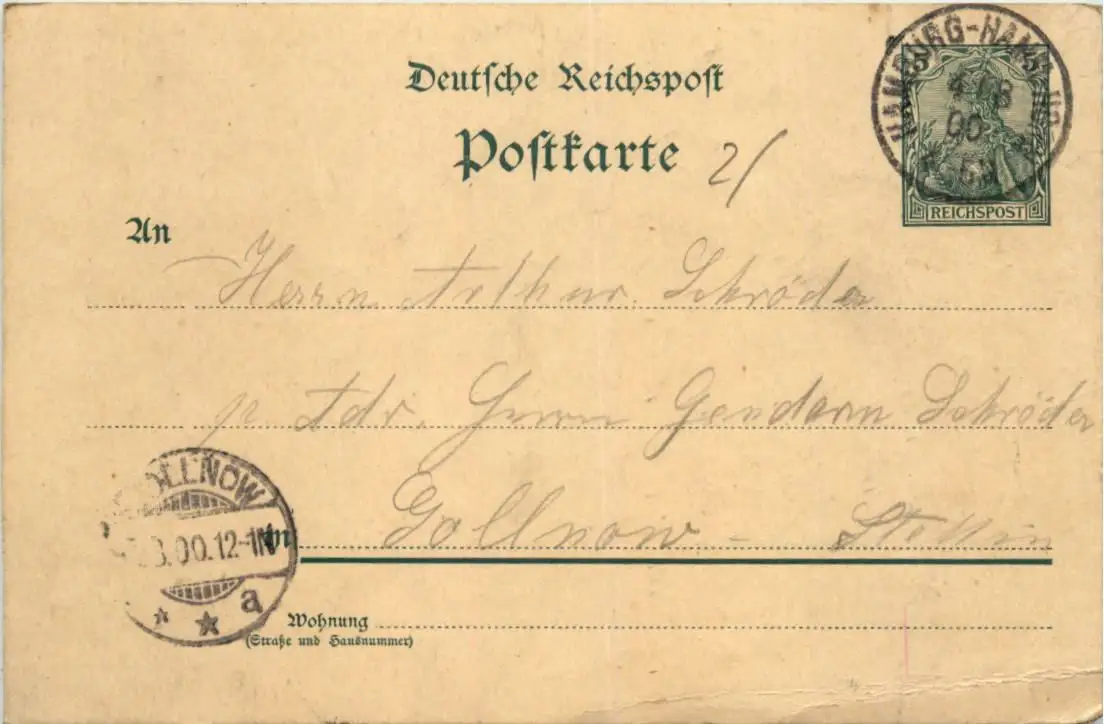 Deutsche Reichspost
Postkarte 2/
5 5
REICHSPOST
HAMBURG-HAM
00
An
Herrn Arthur Schröder
p. Adr. Herrn Gendarm Schröder
Gollnow - Stettin
GOLLNOW
8.00.12-1N
a
In
Wohnung
(Straße und Hausnummer)